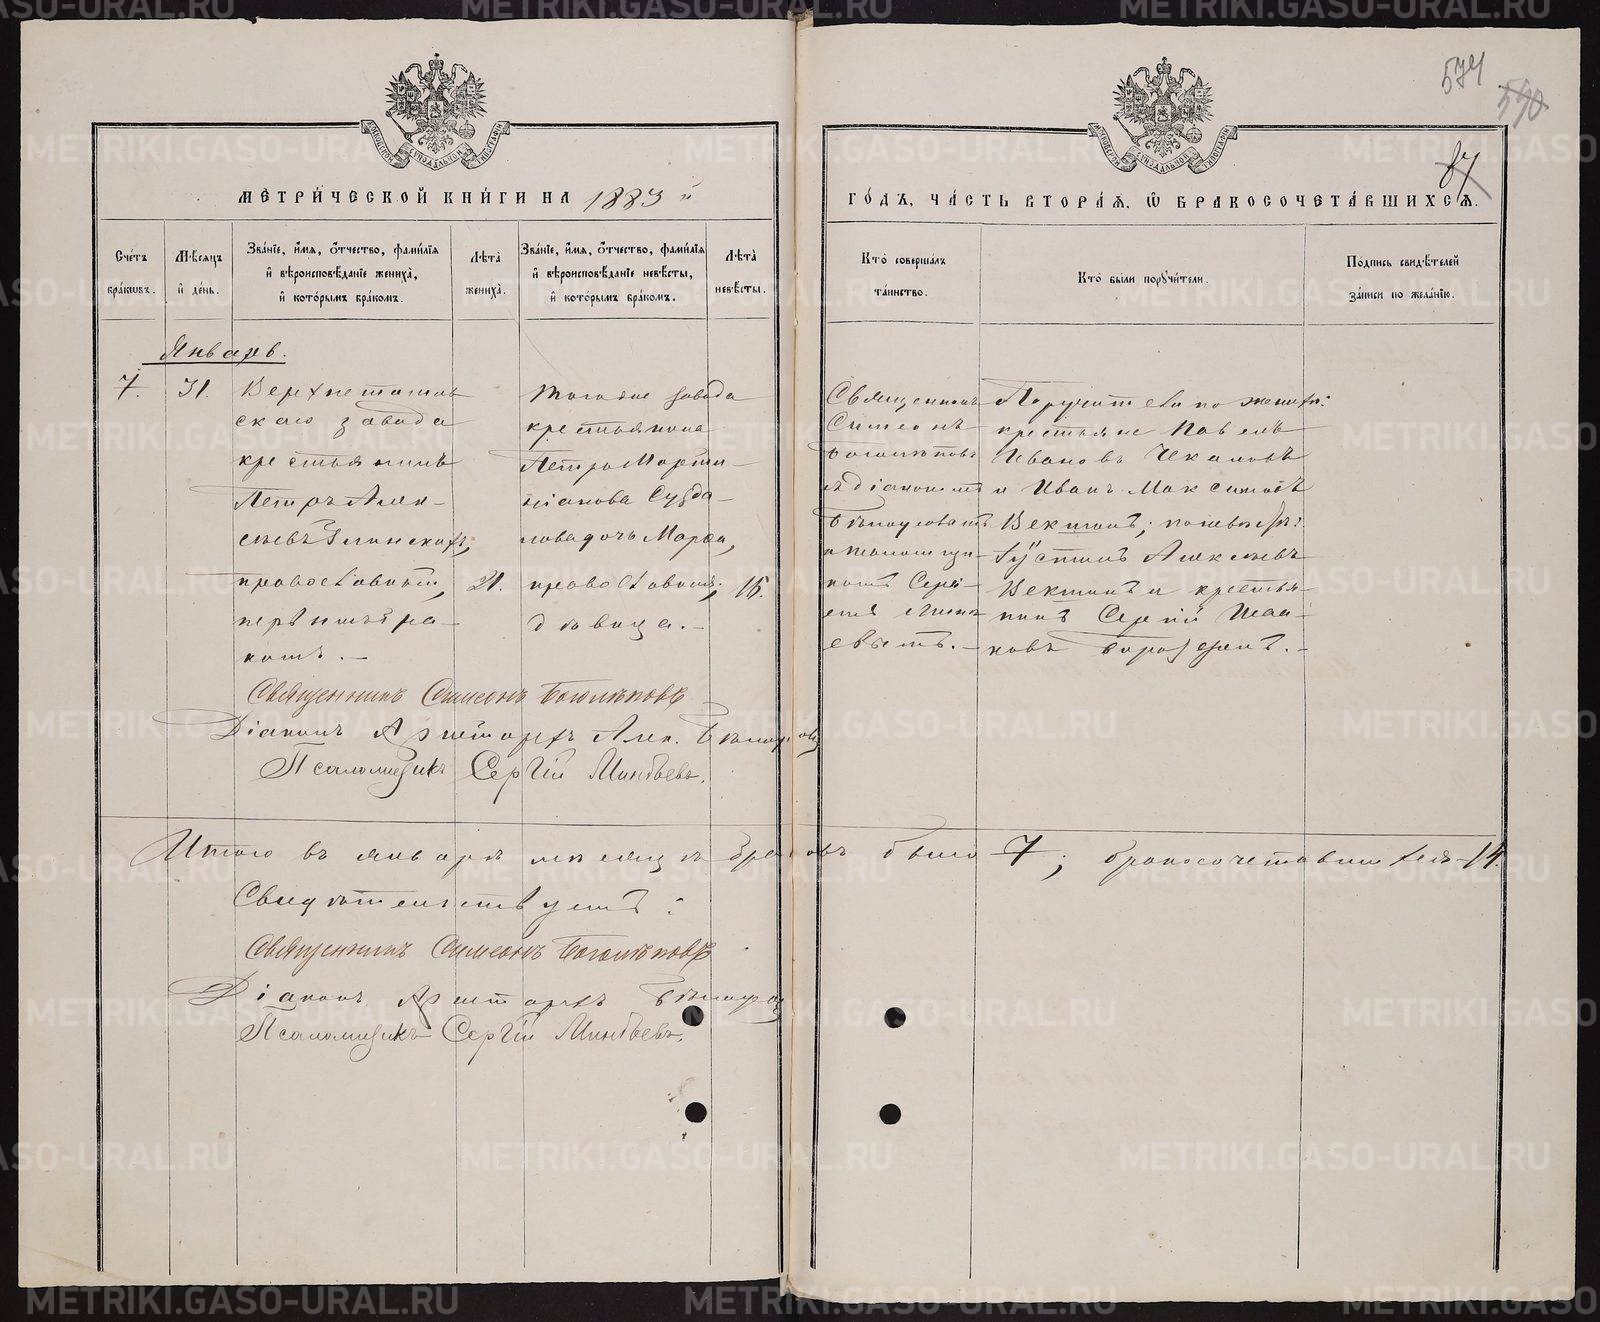 574
590
87
МЕТРИ́ЧЕСКОЙ КНИ́ГИ НА 1883 й
ГО́ДЪ, ЧА́СТЬ ВТОРА́Я, Ѡ БРАКОСОЧЕТА́ВШИХСѦ.
Сче́тъ бра́ковъ.
Мѣ́сяцъ и де́нь.
Зва́нїе, и́мя, о́тчество, фами́лїя и вѣроисповѣ́данїе жениха̀, и кото́рымъ бра́комъ.
Лѣ́та жениха̀.
Зва́нїе, и́мя, о́тчество, фами́лїя и вѣроисповѣ́данїе невѣ́сты, и кото́рымъ бра́комъ.
Лѣ́та невѣ́сты.
Кто̀ соверша́лъ та́инство.
Кто̀ бы́ли порꙋчи́тели.
По́дпись свидѣ́телей за́писи по жела́нїю.
Январь.
7.
31.
скаго завода
крестьянинъ
Петръ Алек-
православный,
первымъ бра-
комъ. —
21.
того же завода
крестьянина
Петра Марти-
ніанова Сузда-
лова дочь Марѳа,
православная,
дѣвица. —
16.
Священникъ
Симеонъ
Боголѣповъ
съ діакономъ
и псаломщи-
комъ Сергі-
емъ Мине-
евымъ. —
Поручители по женихѣ:
крестьяне Павелъ
Ивановъ Чекановъ
и Иванъ Максимовъ
по невѣстѣ:
Іустинъ Алексѣевъ
и крестья-
нинъ Сергій Иса-
ковъ
Священникъ Симеонъ Боголѣповъ
Діаконъ Аристархъ Алек.
Псаломщикъ Сергій Минѣевъ.
Итого въ январѣ мѣсяцѣ браковъ было 7; бракосочетавшихся - 14.
Свидѣтельствуемъ:
Священникъ Симеонъ Боголѣповъ
Діаконъ Аристархъ
Псаломщикъ Сергій Минѣевъ.
METRIKI.GASO-URAL.RU